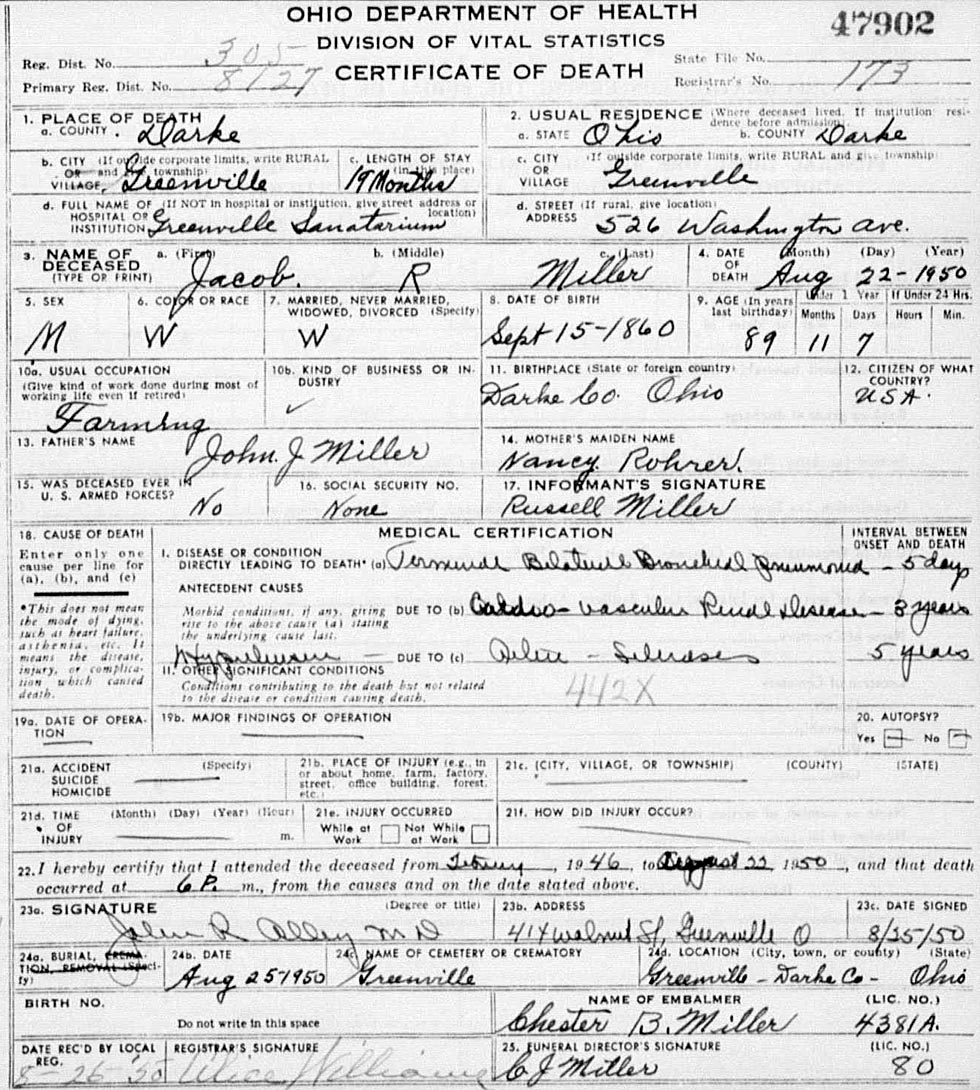 OHIO DEPARTMENT OF HEALTH
DIVISION OF VITAL STATISTICS
CERTIFICATE OF DEATH
47902
Reg. Dist. No. 305
Primary Reg. Dist. No. 8127
State File No.
Registrar's No. 173
1. PLACE OF DEATH
a. COUNTY. Darke
2. USUAL RESIDENCE (Where deceased lived. If institution: residence before admission)
a. STATE Ohio b. COUNTY Darke
b. CITY (If outside corporate limits, write RURAL
OR and township)
VILLAGE, Greenville
c. LENGTH OF STAY
(in this place)
19 Months
c. CITY (If outside corporate limits, write RURAL and give township)
OR
VILLAGE Greenville
d. FULL NAME OF (If NOT in hospital or institution, give street address or
HOSPITAL OR location)
INSTITUTION Greenville Sanatarium
d. STREET (If rural, give location)
ADDRESS 526 Washington ave.
3. NAME OF
DECEASED
(TYPE OR PRINT)
a. (First) b. (Middle) c. (Last)
Jacob. R Miller
4. DATE (Month) (Day) (Year)
OF
DEATH Aug 22-1950
5. SEX
M
6. COLOR OR RACE
W
7. MARRIED, NEVER MARRIED,
WIDOWED, DIVORCED (Specify)
W
8. DATE OF BIRTH
Sept 15-1860
9. AGE (In years
last birthday)
89
Under 1 Year If Under 24 Hrs.
Months Days Hours Min.
11 7
10a. USUAL OCCUPATION
(Give kind of work done during most of
working life even if retired)
Farming
10b. KIND OF BUSINESS OR IN-
DUSTRY
11. BIRTHPLACE (State or foreign country)
Darke Co. Ohio
12. CITIZEN OF WHAT
COUNTRY?
USA.
13. FATHER'S NAME
John. J Miller
14. MOTHER'S MAIDEN NAME
Nancy. Rohrer.
15. WAS DECEASED EVER IN
U. S. ARMED FORCES?
No
16. SOCIAL SECURITY NO.
None
17. INFORMANT'S SIGNATURE
Russell Miller
18. CAUSE OF DEATH
Enter only one
cause per line for
(a), (b), and (c)
*This does not mean
the mode of dying,
such as heart failure,
asthenia, etc. It
means the disease,
injury, or complica-
tion which caused
death.
MEDICAL CERTIFICATION
INTERVAL BETWEEN
ONSET AND DEATH
I. DISEASE OR CONDITION
DIRECTLY LEADING TO DEATH* (a) Terminal Bilateral Bronchial pneumonia - 5 days
ANTECEDENT CAUSES
Morbid conditions, if any, giving
rise to the above cause (a) stating
the underlying cause last.
DUE TO (b) Cardio-vascular Renal disease - 3 years
DUE TO (c) Arterio-Sclerosis 5 years
II. OTHER SIGNIFICANT CONDITIONS
Conditions contributing to the death but not related
to the disease or condition causing death.
442X
19a. DATE OF OPERA-
TION
19b. MAJOR FINDINGS OF OPERATION
20. AUTOPSY?
Yes No
21a. ACCIDENT (Specify)
SUICIDE
HOMICIDE
21b. PLACE OF INJURY (e.g., in
or about home, farm, factory,
street, office building, forest,
etc.)
21c. (CITY, VILLAGE, OR TOWNSHIP) (COUNTY) (STATE)
21d. TIME (Month) (Day) (Year) (Hour)
OF
INJURY m.
21e. INJURY OCCURRED
While at Not While
Work at Work
21f. HOW DID INJURY OCCUR?
22. I hereby certify that I attended the deceased from , 1946, to August 22, 1950, and that death
occurred at 6 P. m., from the causes and on the date stated above.
23a. SIGNATURE (Degree or title)
John R Alley MD
23b. ADDRESS
414 Walnut St, Greenville O
23c. DATE SIGNED
8/25/50
24a. BURIAL, CREMA-
TION, REMOVAL (Speci-
fy)
24b. DATE
Aug 25 1950
24c. NAME OF CEMETERY OR CREMATORY
Greenville
24d. LOCATION (City, town, or county) (State)
Greenville - Darke Co - Ohio
BIRTH NO.
Do not write in this space
NAME OF EMBALMER (LIC. NO.)
Chester B. Miller 4381A.
DATE REC'D BY LOCAL
REG.
8-26-50
REGISTRAR'S SIGNATURE
Alice Williams
25. FUNERAL DIRECTOR'S SIGNATURE (LIC. NO.)
C J Miller 80